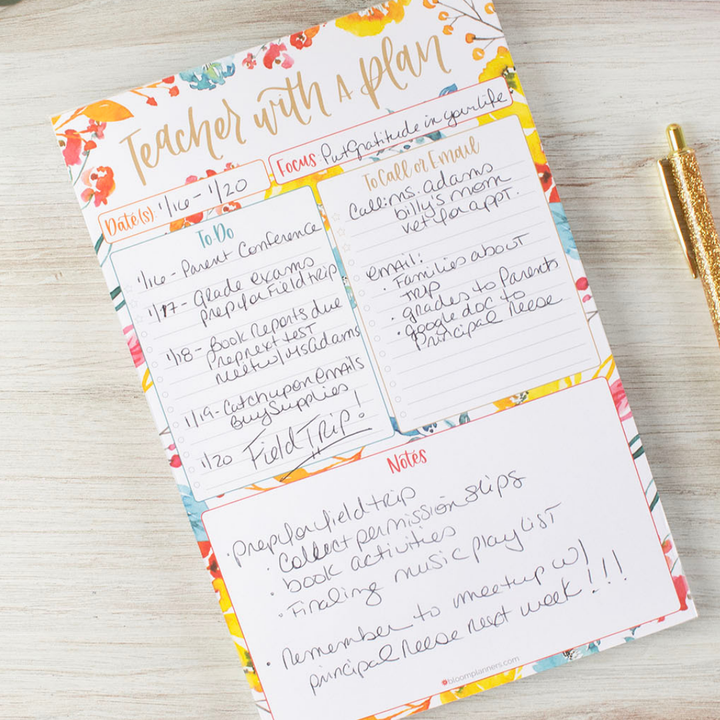 Teacher with A plan
Date(s): 1/16 - 1/20
Focus: Put Gratitude in your life
To Do
1/16 - Parent Conference
1/17 - Grade exams
prep for Field trip
1/18 - Book Reports due
Prep next test
meet w/ Ms Adams
1/19 - Catch up on emails
Buy Supplies
1/20 Field Trip!
To Call or Email
Call: ms. adams
billy's mom
vet for appt.
email:
• Families about
trip
• grades to Parents
• google doc to
Principal Reese
Notes
• prep for field trip
• Collect permission slips
• book activities
• Finaling music playlist
• Remember to meetup w/
principal Reese next week!!!
bloomplanners.com